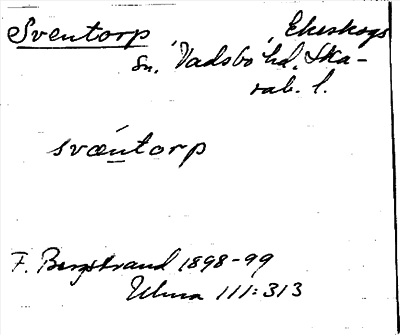 Sventorp, Ekeskogs
sn, Vadsbo hd. Ska-
rab. l.
svǽntorp
F. Bergstrand 1898-99
Ulma 111:313